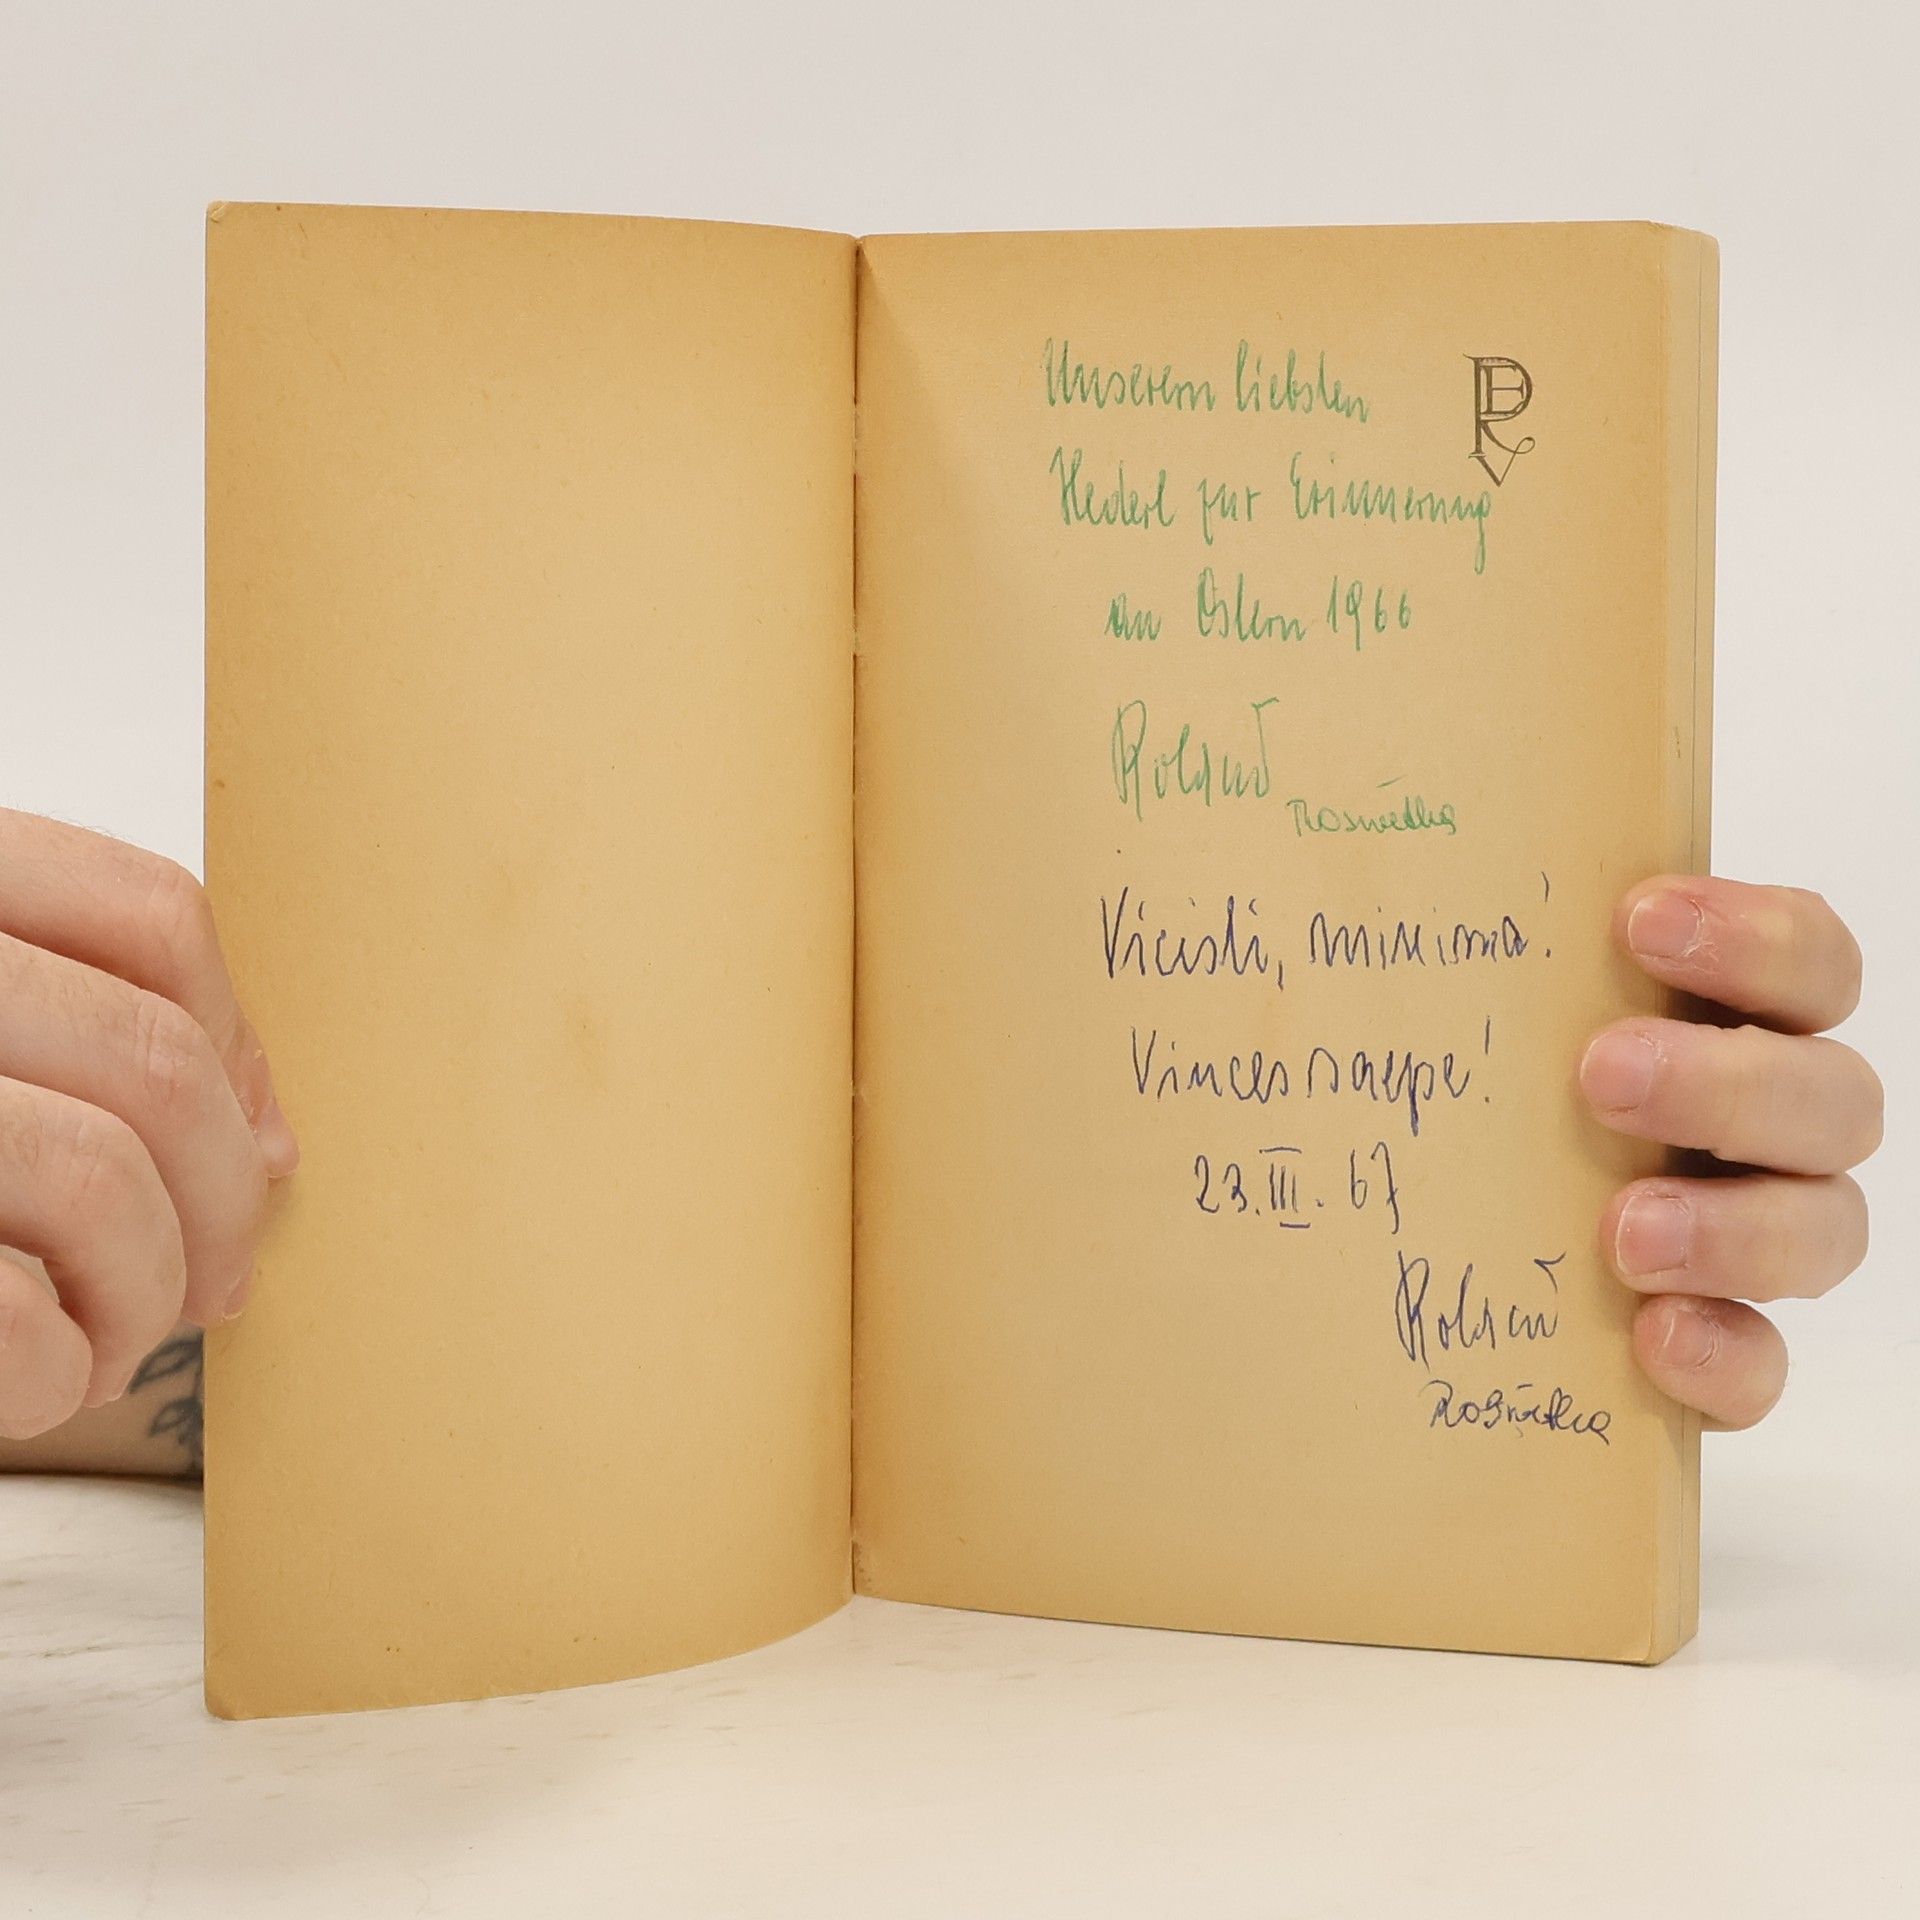 Unserem liebsten
Hederl zur Erinnerung
an Ostern 1966
Roland
Vicisti, minima!
Vinces saepe!
23. III. 67
Roland